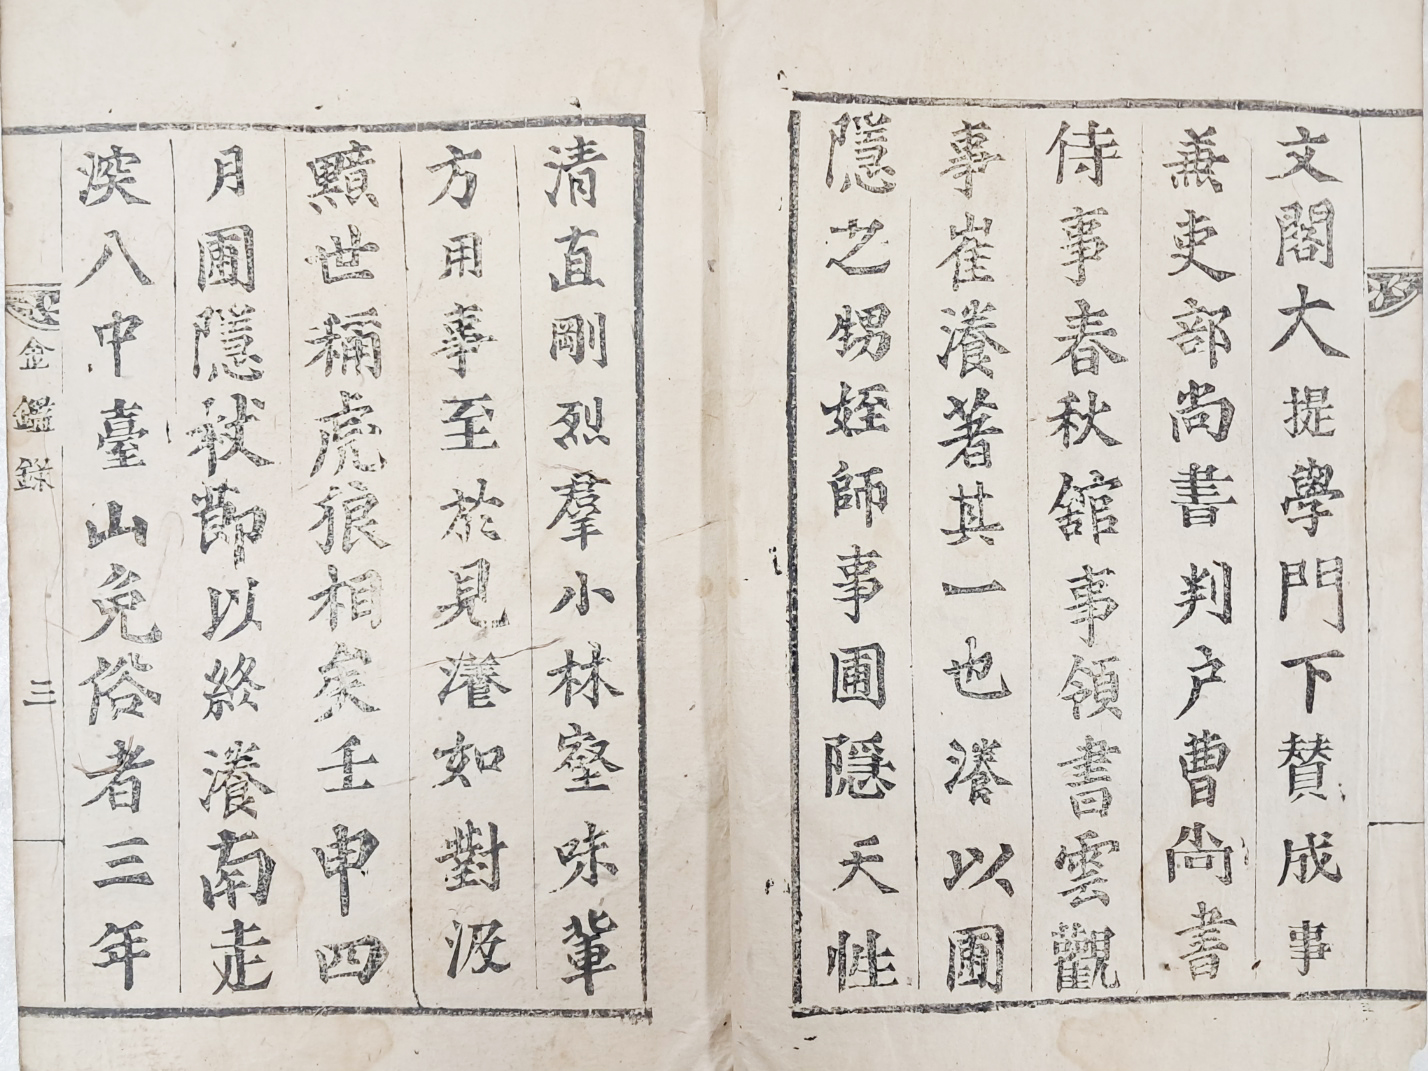 文閣大提學門下賛成事
兼吏部尚書判户曹尚書
侍事春秋舘事領書雲觀
事崔瀁著其一也瀁以圃
隱之甥姪師事圃隱天性
清直剛烈羣小林壑味輩
方用事至於見瀁如對汲
黯世稱虎狼相矣壬申四
月圃隱袱節以終瀁南走
湥八中臺山免俗者三年
金鑑録 三